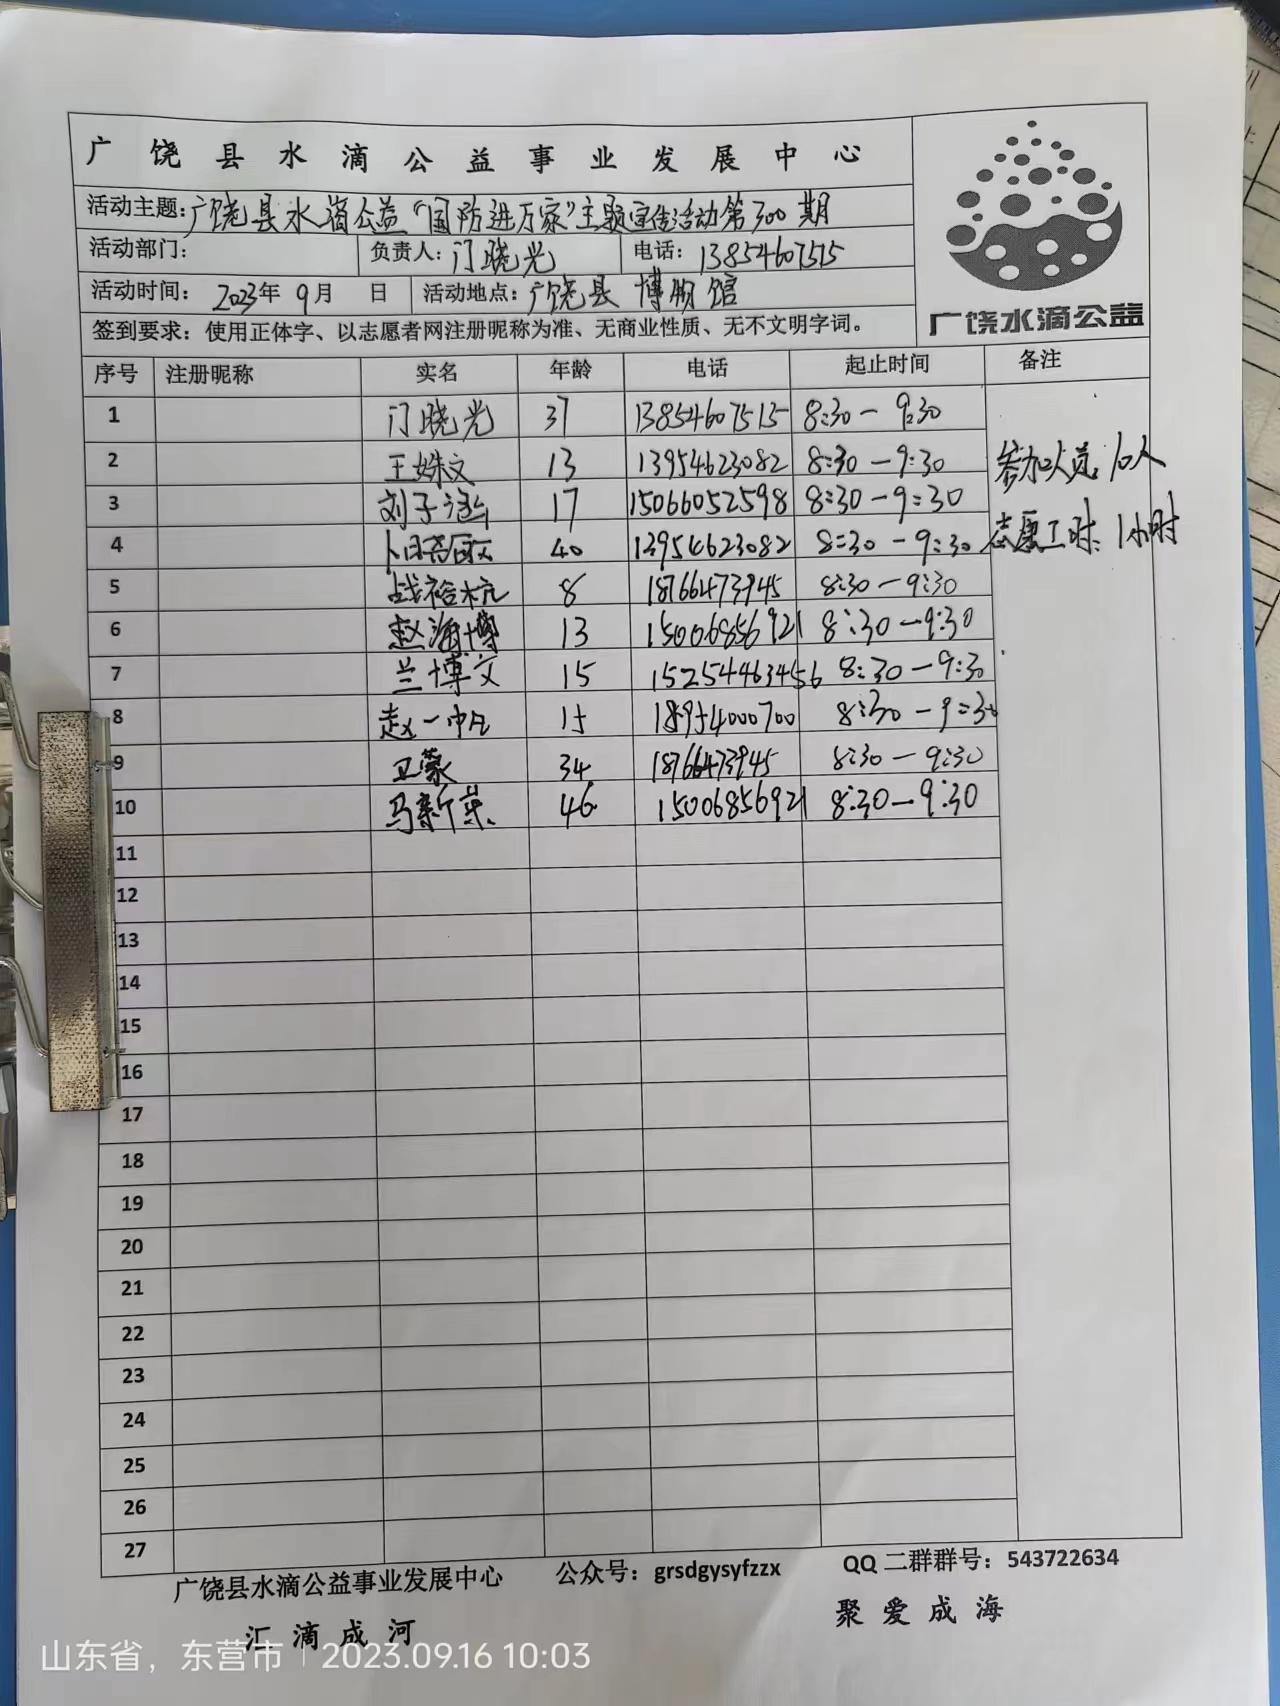 广饶县水滴公益事业发展中心
活动主题:广饶县水滴公益“国防进万家”主题宣传活动第300期
活动部门: 负责人:门晓光 电话:13854607515
活动时间: 2023年 9月 日 活动地点:广饶县 博物馆
签到要求:使用正体字、以志愿者网注册昵称为准、无商业性质、无不文明字词。
广饶水滴公益
序号 注册昵称 实名 年龄 电话 起止时间 备注
1 门晓光 37 13854607515 8:30-9:30
2 王姝文 13 13954623082 8:30-9:30 参加人员:10人
3 刘子涵 17 15066052598 8:30-9:30
4 40 13954623082 8:30-9:30 志愿工时:1小时
5 战裕杭 8 18766473945 8:30-9:30
6 赵海博 13 15006856921 8:30-9:30
7 兰博文 15 15254463456 8:30-9:30
8 赵一 15 18954000700 8:30-9:30
9 卫蒙 34 18766473945 8:30-9:30
10 马新荣 46 15006856921 8:30-9:30
11
12
13
14
15
16
17
18
19
20
21
22
23
24
25
26
27
广饶县水滴公益事业发展中心 公众号:grsdgysyfzzx QQ二群群号:543722634
汇滴成河 聚爱成海
山东省,东营市 | 2023.09.16 10:03